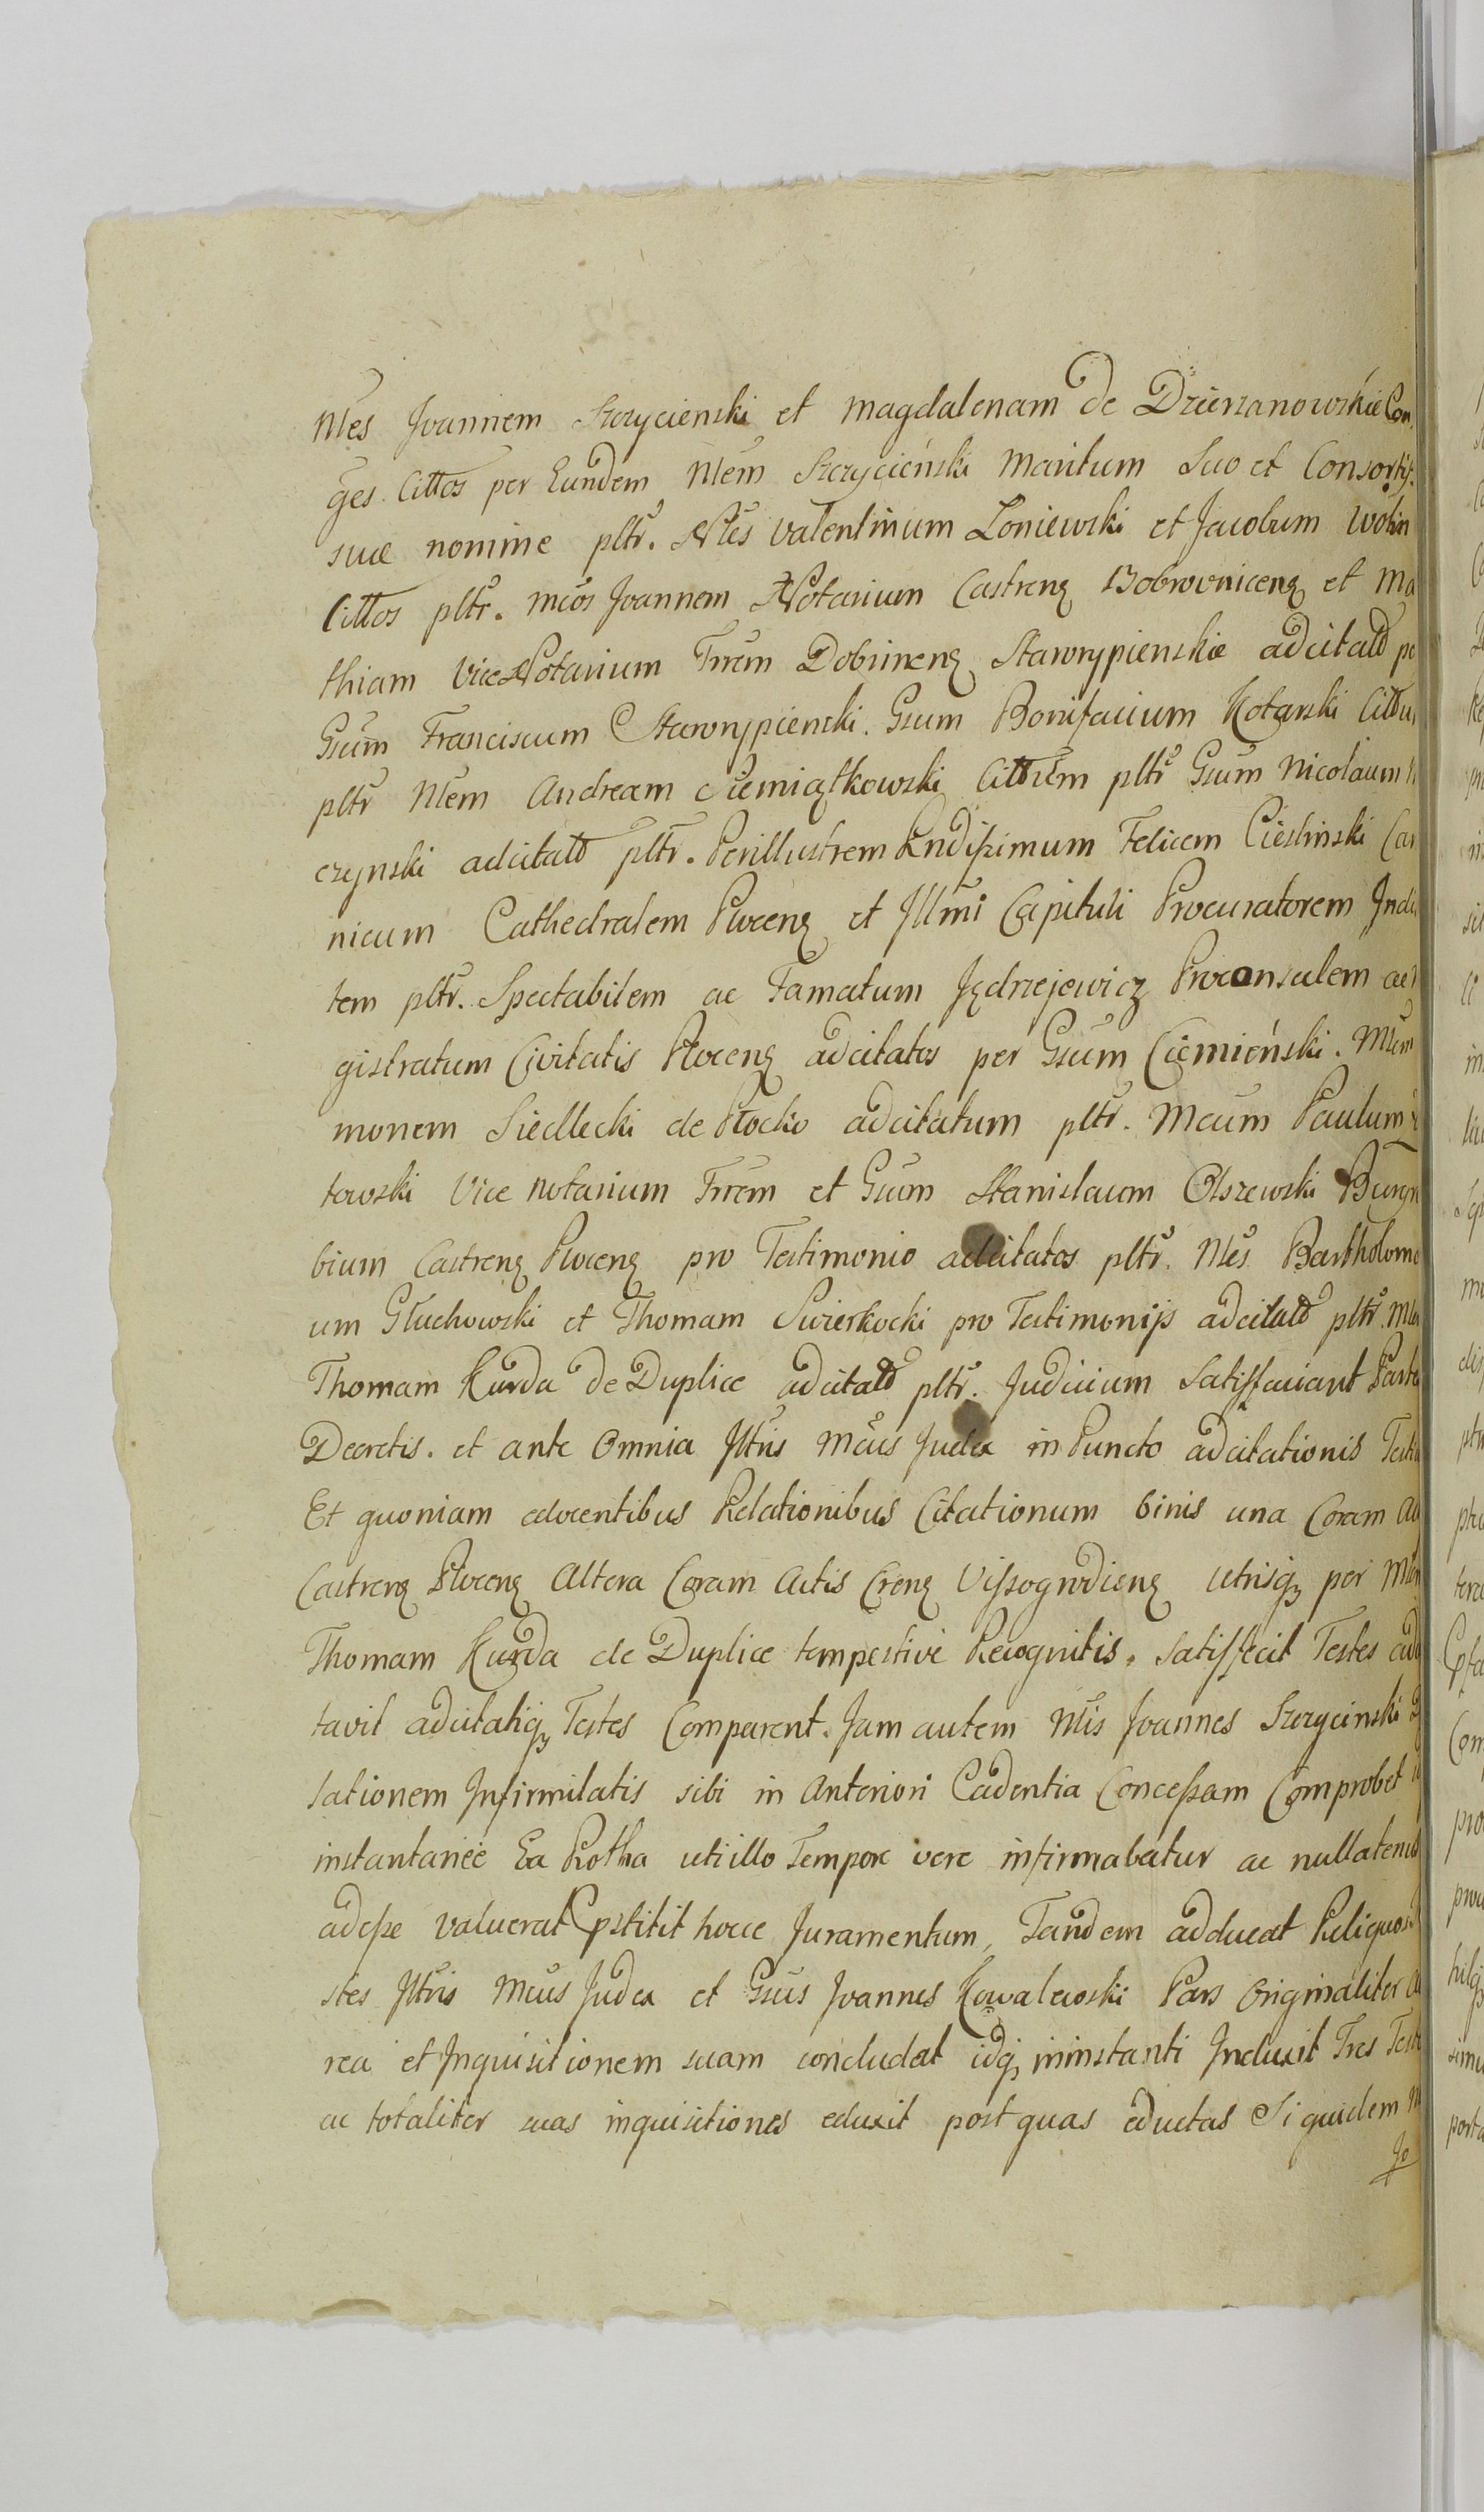 Nles Joannem Szczycienski et Magdalenam de Dzierzanowskie Con
ges. Cittos per Eundem Nlem Szczycieński Maritum Suo et Consortis
suæ nomine pltr. Nles Valentinum Łoniewski et Jacobum Wolin
Cittos pltr. Mcos Joannem Notarium Castrenę Bobrovnicenę et Ma
thiam Vice Notarium Trrem Dobrinenę Stawrypienskie adcitatd pe
Gsum Franciscum Stawrypienski. Gsum Bonifacium Kotarski Cittu
pltr Nlem Andream Siemiątkowski Cittum pltr Gsum Nicolaum
czynski adcitatd pltr. Perillustrem Rndissimum Felicem Ciesliński Ca
nicum Cathedralem Plocenę et Illmi Capituli Procuratorem Indi
tem pltr. Spectabilem ac Famatum Jędrzejewicz Proconsulem ac
gistratum Civitatis Plocenę adcitatos per Gsum Ciemieński. Nlem
monem Siedlecki de Płocko adcitatum pltr. Mcum Paulum
towski Vice Notarium Trrem et Gsum Stanislaum Olszewski Burgr
bium Castrenę Plocenę pro Testimonio adcitatos pltr. Nles Bartholome
um Głuchowski et Thomam Swierkocki pro Testimonijs adcitatd pltr. Nlem
Thomam Kurda de Duplice adcitatd pltr. Judicium Satisfaciant Partes
Decretis. et ante Omnia Jltris Mcus Judex in Puncto adcitationis Testi
Et quoniam edocentibus Relationibus Citationum binis una Coram A
Castrenę Plocenę Altera Coram Actis Crenę Vissogrodienę utrisqȝ per Min
Thomam Kurda de Duplice tempestive Recognitis. Satisfecit Testes adci
tavit adcitatiqȝ Testes Comparent. Jam autem Nlis Joannes Szczycinski
sationem Infirmitatis sibi in Anteriori Cadentia Concessam Comprobet
instantanee Ea Rotha uti illo Tempore vere infirmabatur ac nullatenus
adesse valuerat Cpstitit hocce Juramentum, Tandem adducat Reliquos
stes Jltris Mcus Judex et Gsus Joannes Kowalewski Pars Originaliter
rea et Inquisitionem suam concludat idqȝ ininstanti Induxit Tres Test
ac totaliter suas inquisitiones eduxit post quas eductas Siquidem